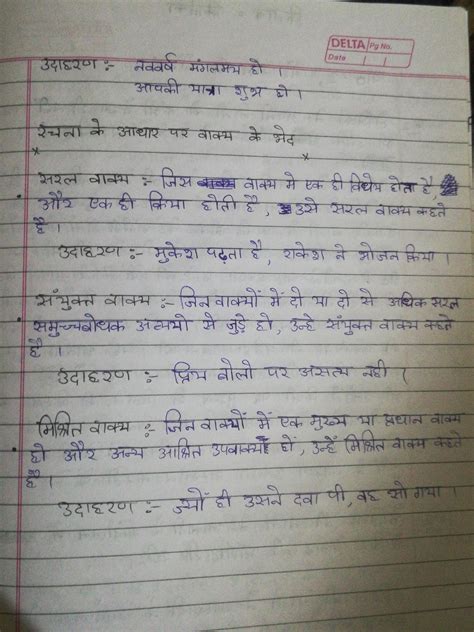 DELTA Pg No.
Date
उदाहरण :- नववर्ष मंगलमय हो ।
आपकी यात्रा शुभ हो ।
रचना के आधार पर वाक्य के भेद
सरल वाक्य :- जिस वाक्य मे एक ही विधेय होता है,
और एक ही क्रिया होती है, उसे सरल वाक्य कहते
है ।
उदाहरण :- मुकेश पढ़ता है, राकेश ने भोजन किया ।
संयुक्त वाक्य :- जिन वाक्यों में दो या दो से अधिक सरल
समुच्चबोधक अव्ययो मे जुड़े हो, उन्हे संयुक्त वाक्य कहते
है ।
उदाहरण :- प्रिय बोलो पर असत्य नही ।
मिश्रित वाक्य :- जिन वाक्यों में एक मुख्य या प्रधान वाक्य
हो और अन्य आश्रित उपवाक्य हों, उन्हें मिश्रित वाक्य कहते
है ।
उदाहरण :- ज्यों ही उसने दवा पी, वह सो गया ।